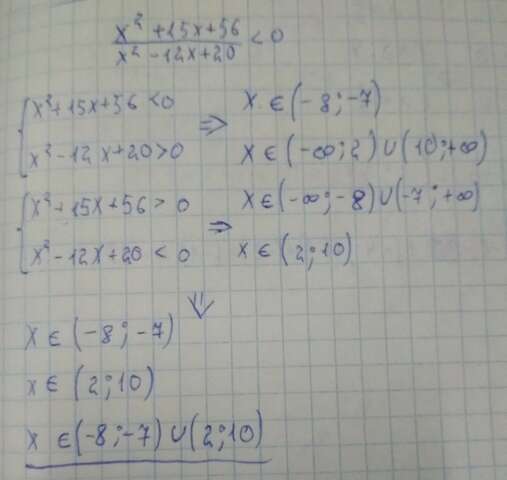 x² + 15x + 56 / x² - 12x + 20 < 0
{ x² + 15x + 56 < 0 ⇒ x ∈ (-8; -7)
x² - 12x + 20 > 0 x ∈ (-∞; 2) ∪ (10; +∞)
{ x² + 15x + 56 > 0 ⇒ x ∈ (-∞; -8) ∪ (-7; +∞)
x² - 12x + 20 < 0 x ∈ (2; 10)
⇓
x ∈ (-8; -7)
x ∈ (2; 10)
x ∈ (-8; -7) ∪ (2; 10)